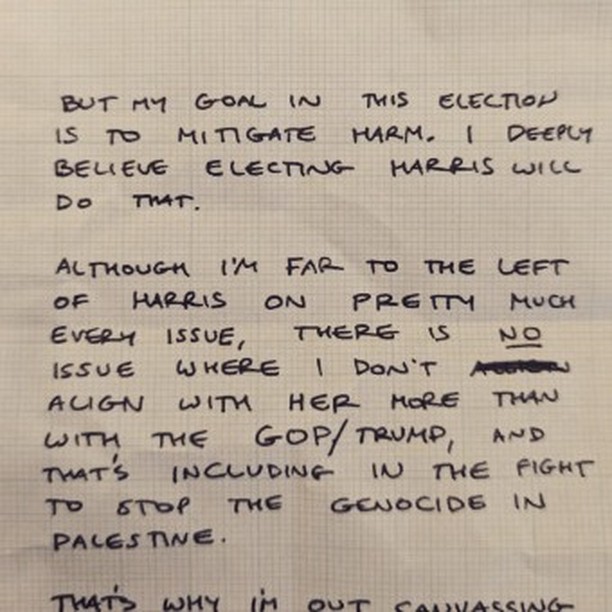 BUT MY GOAL IN THIS ELECTION
IS TO MITIGATE HARM. I DEEPLY
BELIEVE ELECTING HARRIS WILL
DO THAT.
ALTHOUGH I'M FAR TO THE LEFT
OF HARRIS ON PRETTY MUCH
EVERY ISSUE, THERE IS NO
ISSUE WHERE I DON'T
ALIGN WITH HER MORE THAN
WITH THE GOP/TRUMP, AND
THAT'S INCLUDING IN THE FIGHT
TO STOP THE GENOCIDE IN
PALESTINE.
THAT'S WHY I'M OUT CANVASSING